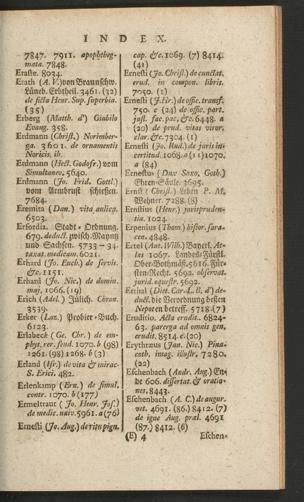 INDEX.
7847. 7911. apophtheg-
mata. 7848.
Erastæ. 8034.
Erath (A. V.) von Braunschw.
Lüneb. Erbtheil. 3461. (32)
de ficta Henr. Sup. superbia.
(35)
Erberg (Matth. d') Giubilo
Evang. 358.
Erdmann (Christ.) Norimber-
ga. 3601. de ornamentis
Noricis. ib.
Erdmann (Heft. Godofr.) vom
Simultaneo. 5640.
Erdmann (Jo. Frid. Gottl.)
vom Armbrust schiessen.
7684.
Eremita (Dan.) vita aulica.
6503.
Erfordia. Stadt-Ordnung.
679. deduct. zwisch. Mayntz
und Sachsen. 5733-34.
taxat. medicam. 6021.
Erhard (Jo. Euch.) de servis.
&c. 1151.
Erhard (Jo. Nic.) de domin.
maj. 1066. (19)
Erich (Adel.) Jülich. Chron.
3539.
Erker (Laz.) Probier-Buch.
6123.
Erlabeck (Ge. Chr.) de em-
phyt. rer. feud. 1070. b (98)
1261. (98) 1268. b (3)
Erland (Isr.) de vita & mirac-
S. Erici. 482.
Erlenkamp (Ern.) de simul.
contr. 1070. b (177)
Ermeltraut (Jo. Henr. Jos.)
de medic. natv. 5961. a (76)
Ernesti (Jo. Aug.) de ritu pign.
cap. &c. 1069. (7) 8414.
(41)
Ernesti (Jo. Christ.) de cunctat.
erud. in compon. libris.
7050. (1)
Ernesti (J. Hr.) de offic. transf.
750. c (24) de offic. part.
just. fac. pac. &c. 6448. a
(20) de prud. vitas viror.
clar. &c. 7304. (1)
Ernesti (Jo. Rud.) de juris in-
certitud. 1068. a (11) 1070.
a (84)
Ernestus (Dux Saxo. Goth.)
Ehren-Säule. 3695.
Ernst (Christ.) Leben P. M.
Wehner. 7288. (8)
Ernstius (Henr.) jurispruden-
tia. 1024.
Erpenius (Thom) histor. Sara-
cen. 4848.
Ertel (Ant. Wilh.) Bayerl. At-
las 1067. Landes-Fürstl.
Ober-Bothmäß. 5616. Für-
sten-Recht. 5692. observat.
jurid. equestr. 5692.
Ertius (Diet. Car. L. B. d') de-
duct. die Verordnung dessen
Nepoten betreff. 5718. (7)
Eruditio. Acta erudit. 6824-
63. parerga ad omnis gen.
erudit. 8514. e. (20)
Erythræus (Jan. Nic.) Pina-
coth. imag. illustr. 7280.
(22)
Eschenbach (Andr. Aug.) En-
de 606. dissertat. & oratio-
nes. 8443.
Eschenbach (A. C.) de augur.
vet. 4691. (86.) 8412. (7)
de igne Aug. præl. 4691
(87.) 8412. (6)
(E) 4 Eschen-